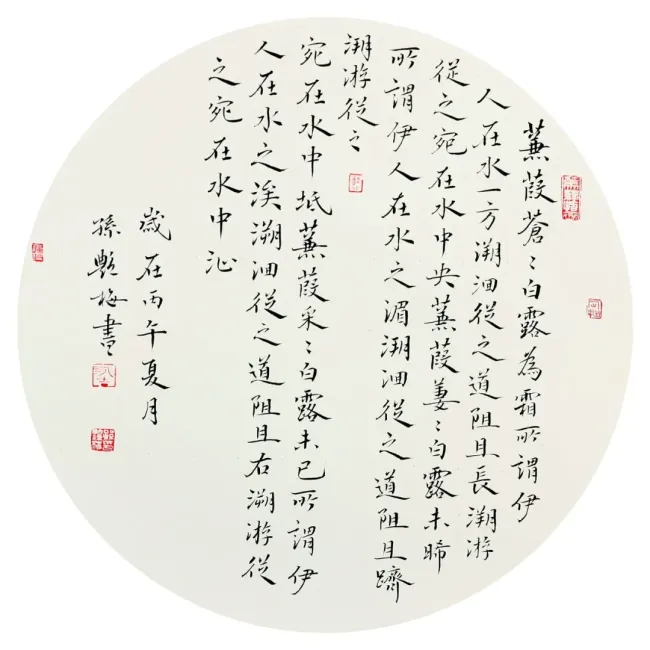 蒹葭蒼〻白露為霜所謂伊
人在水一方溯洄從之道阻且長溯游
從之宛在水中央蒹葭萋〻白露未晞
所謂伊人在水之湄溯洄從之道阻且躋
溯游從之
宛在水中坻蒹葭采〻白露未已所謂伊
人在水之涘溯洄從之道阻且右溯游從
之宛在水中沚
歲在丙午夏月
孫艷梅書